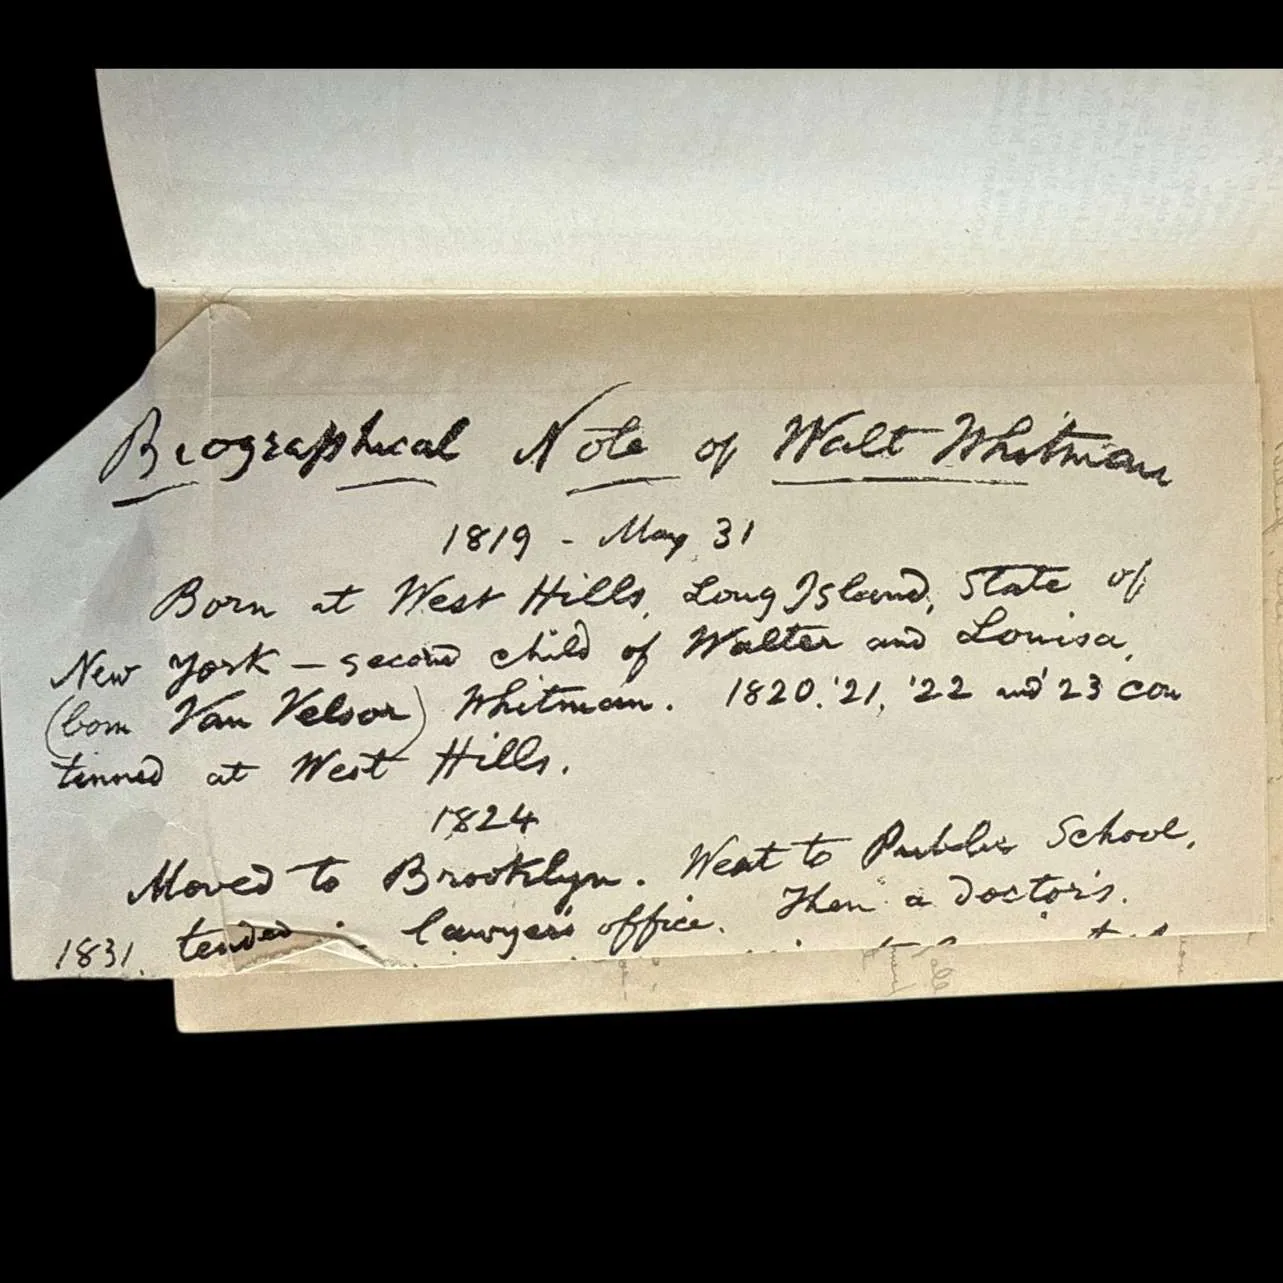 Biographical Note of Walt Whitman
1819 - May 31
Born at West Hills, Long Island, State of
New York — second child of Walter and Louisa,
(born Van Velsor) Whitman. 1820, '21, '22 and '23 con
tinned at West Hills.
1824
Moved to Brooklyn. Went to Public School,
1831. tended lawyer's office. Then a doctor's.